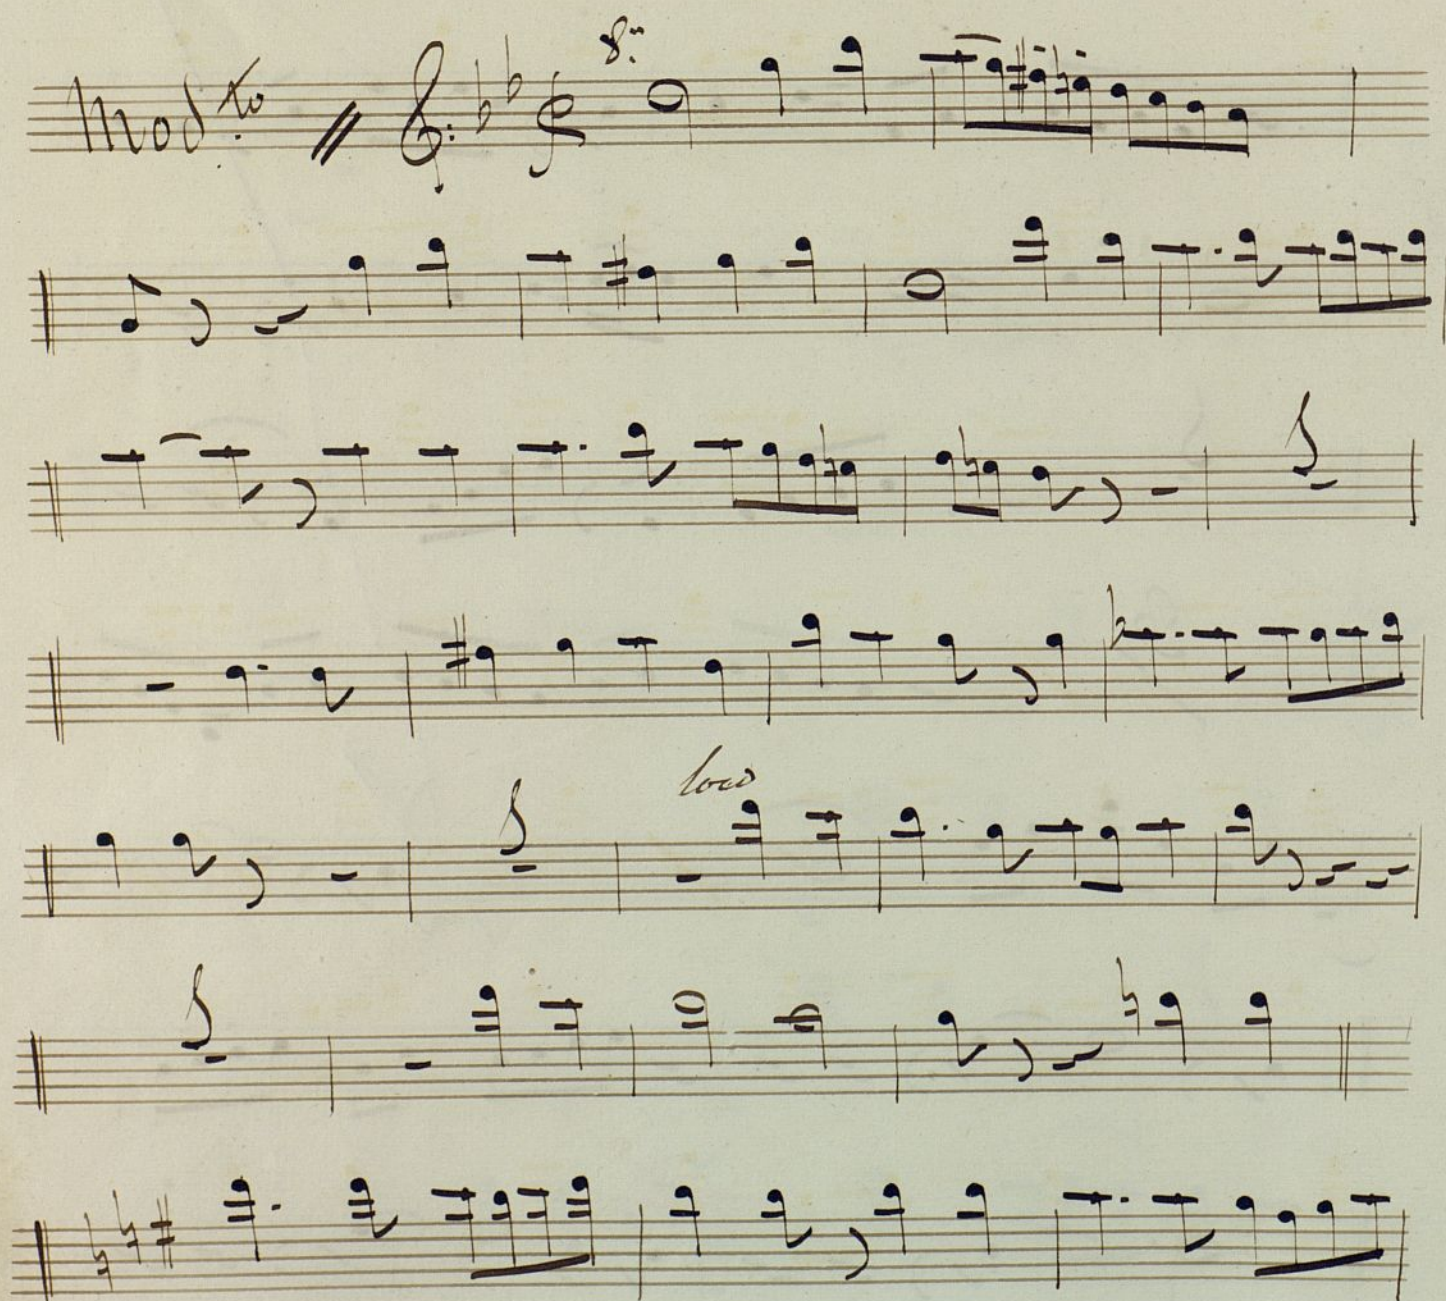 Mod.to 8.
loco